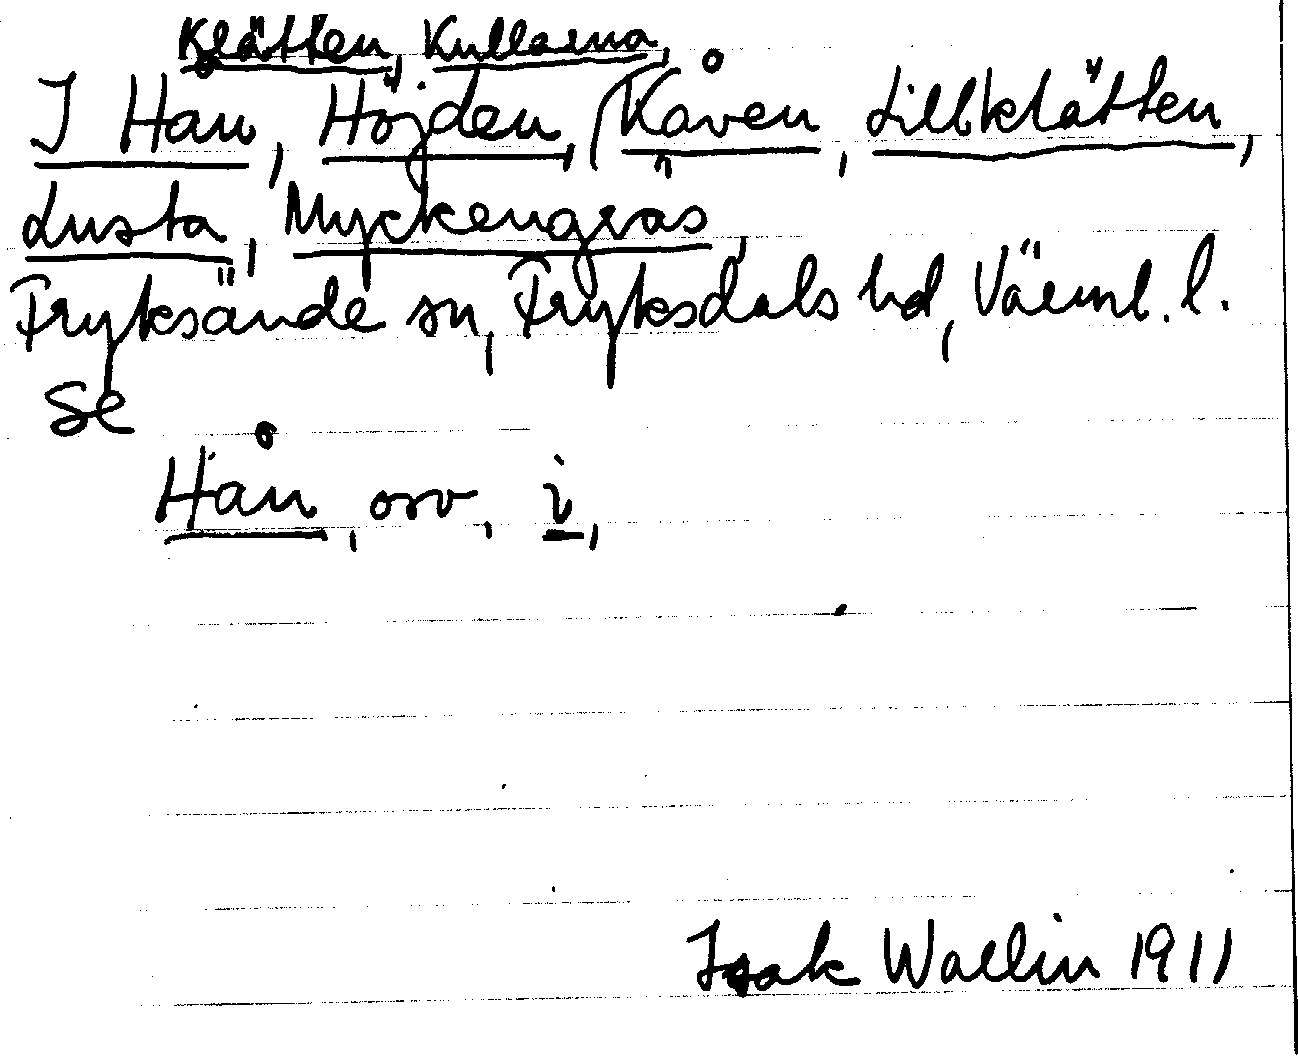 Klätten, Kullarna,
I Hån, Höjden, Kåven, Lillklätten,
Lusta, Myckengräs,
Fryksände sn, Fryksdals hd, Värml. l.
Se
Hån, osv, i,
Isak Wallin 1911